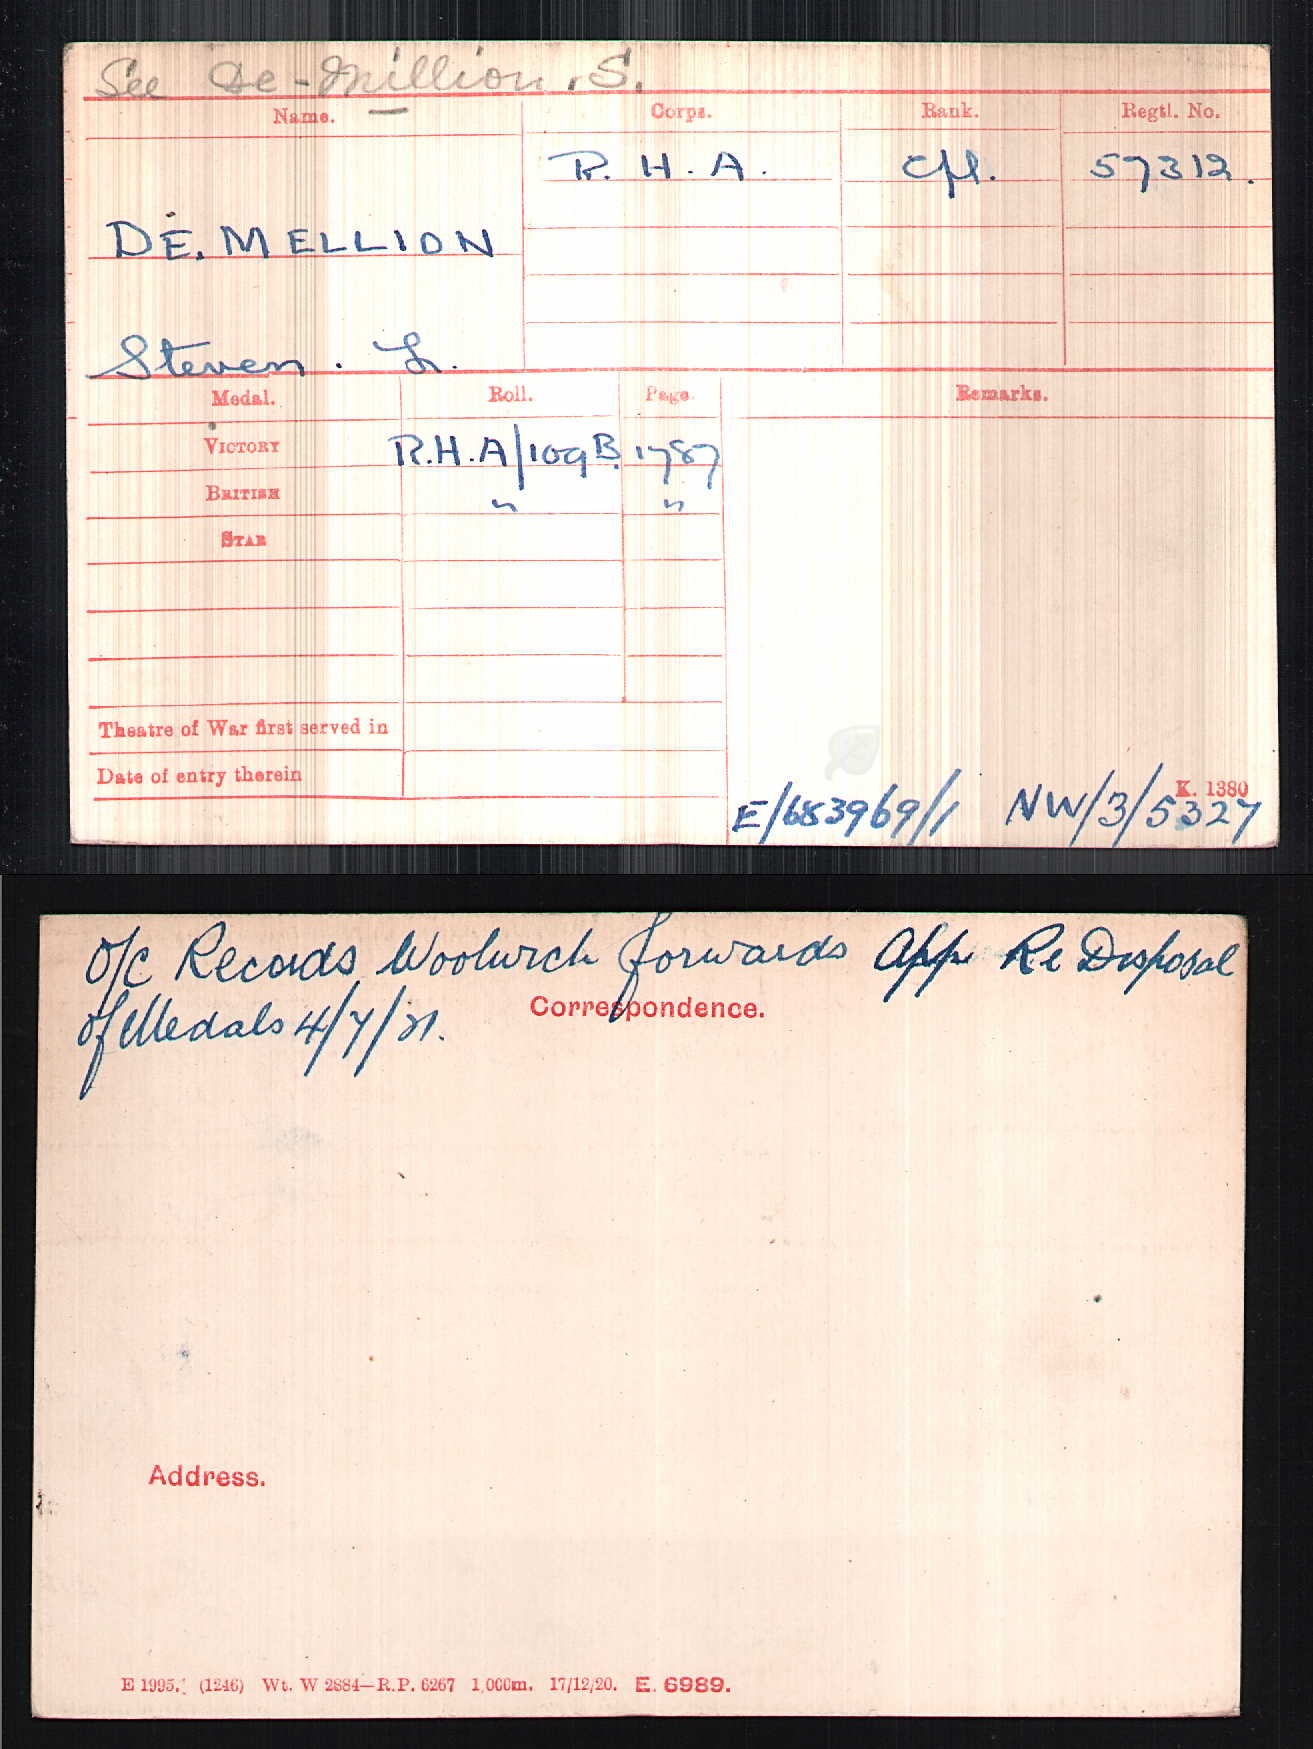 See De-Million. S.
Name. Corps. Rank. Regtl. No.
R. H. A. Cpl. 57312.
DE. MELLION
Steven. L.
Medal. Roll. Page. Remarks.
VICTORY R.H.A/109B. 1787
BRITISH " "
STAR
Theatre of War first served in
Date of entry therein
K. 1380
E/683969/1 NW/3/5327
O/C Records Woolwich forwards App Re Disposal
of Medals 4/7/21.
Correspondence.
Address.
E 1995. (1246) Wt. W 2884—R.P. 6267 1,000m. 17/12/20. E. 6989.